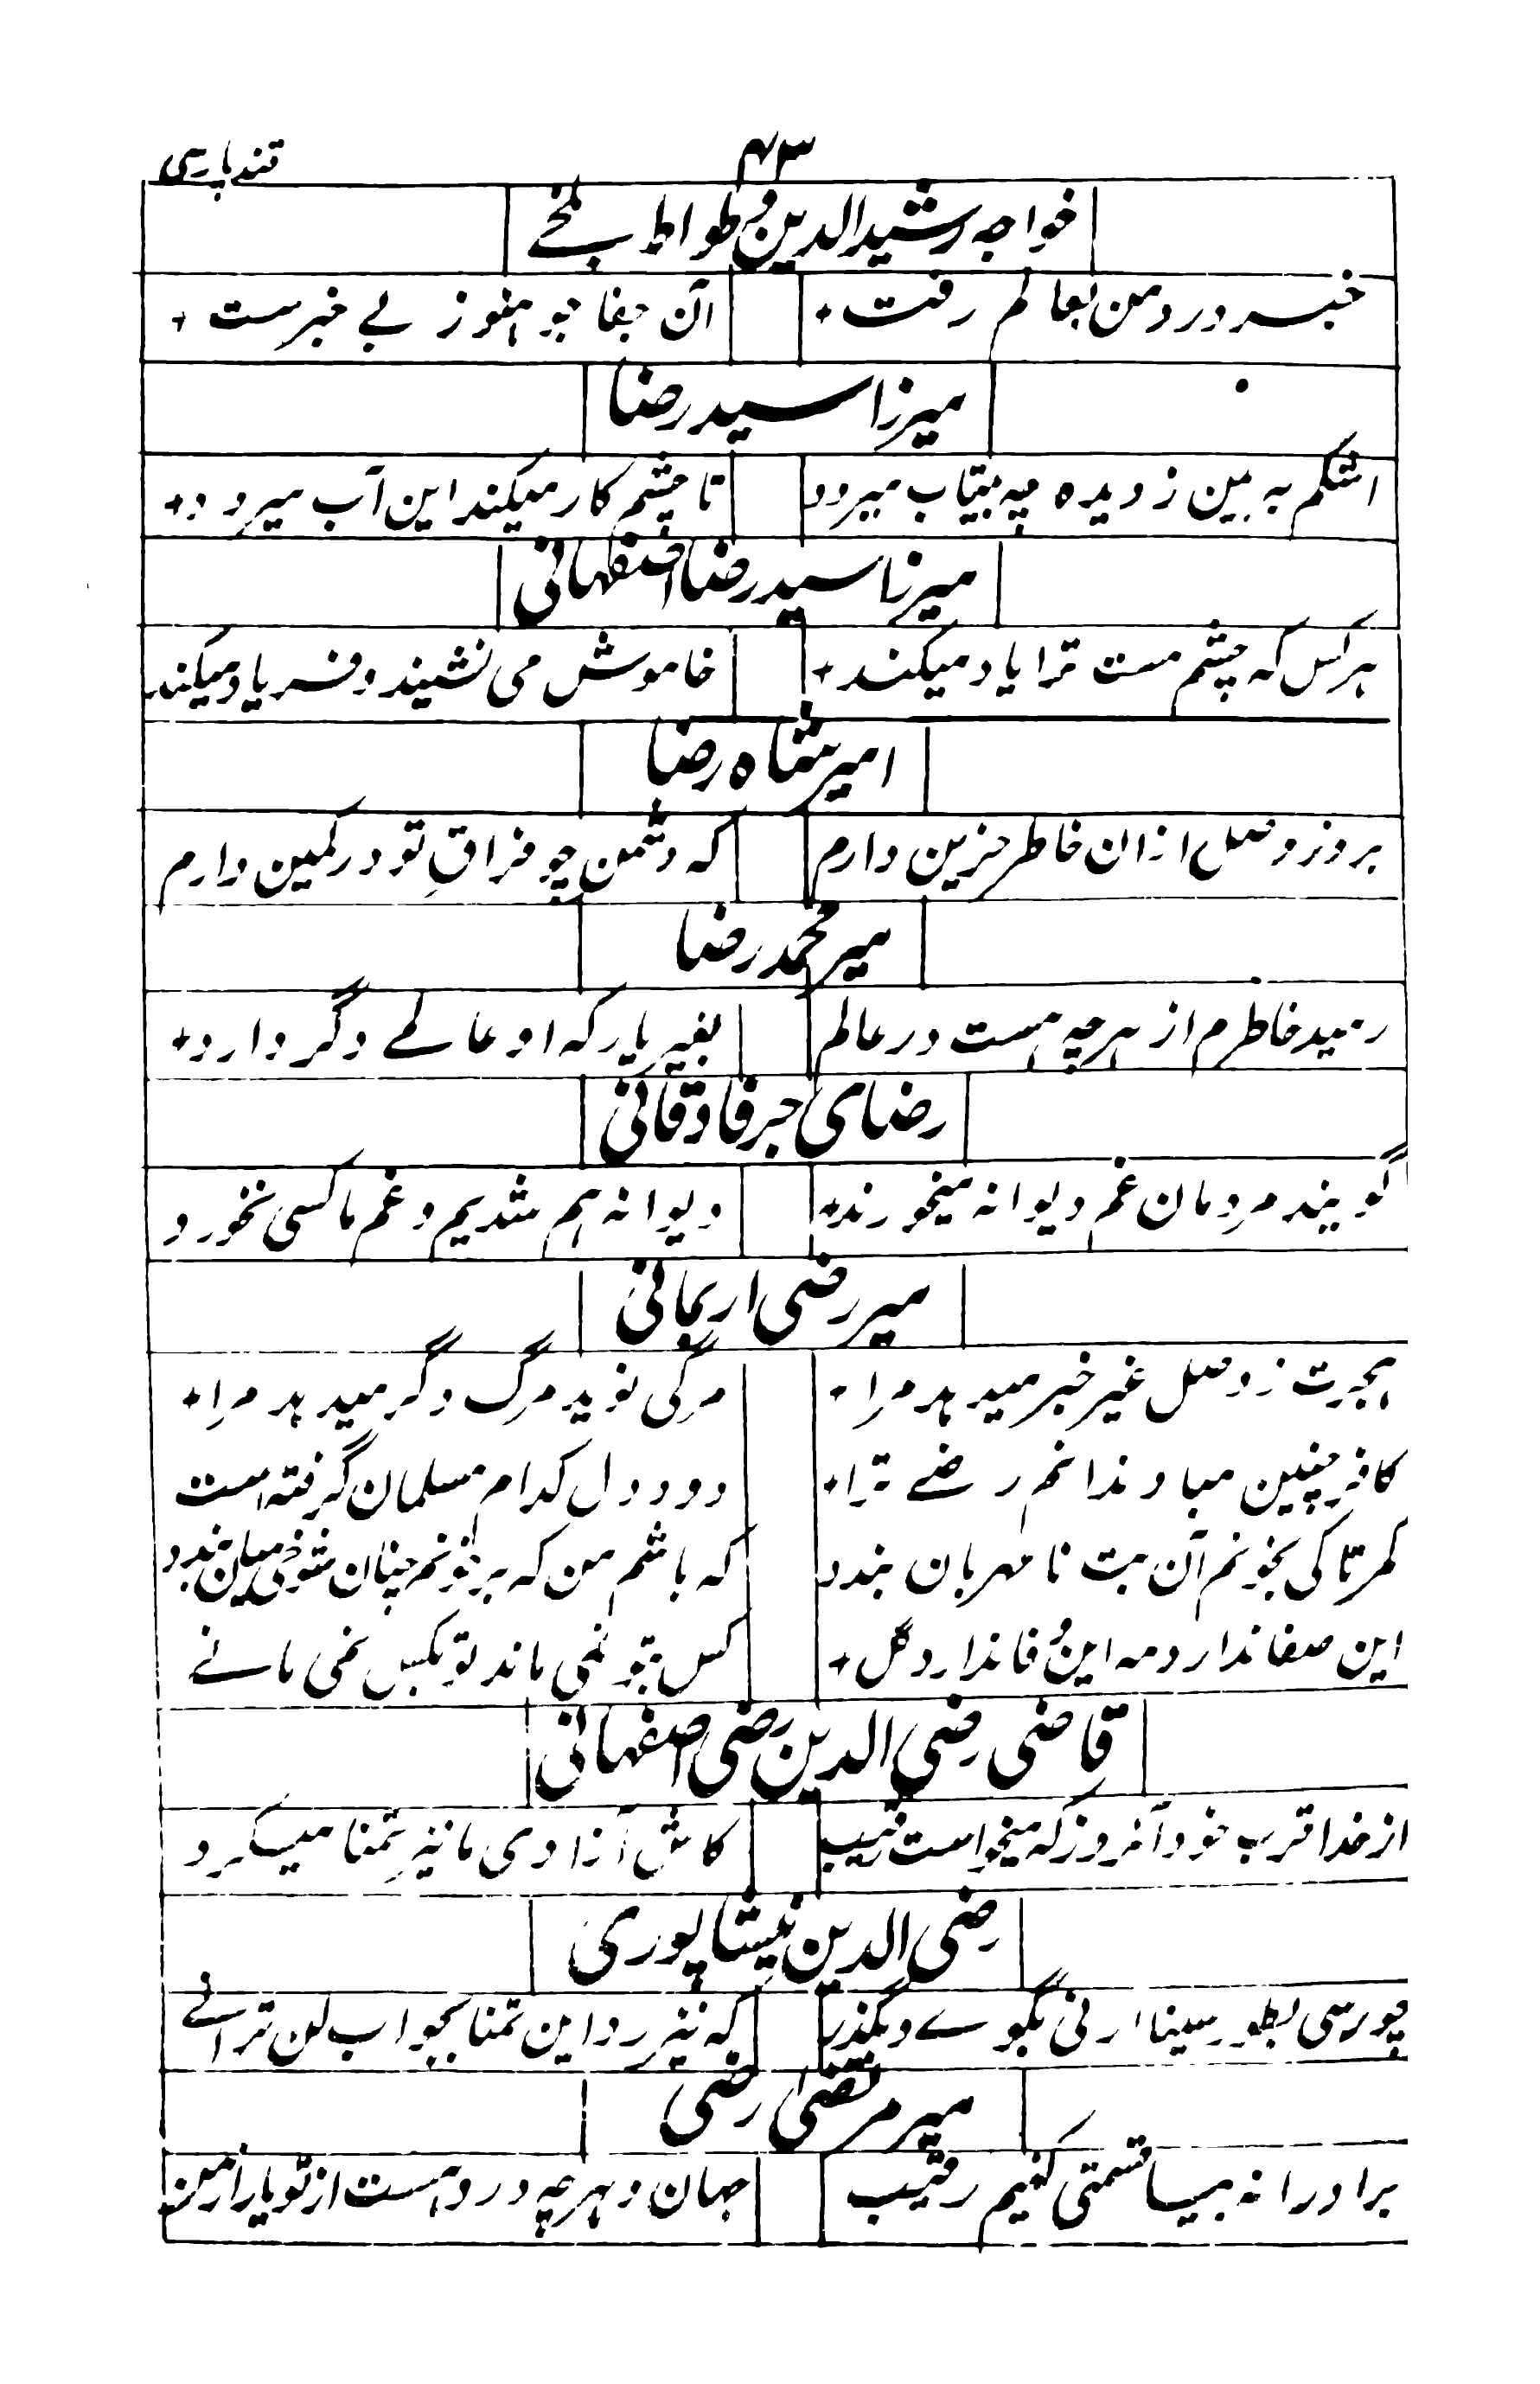 قند پارسی
۴۳
خواجه رشیدالدین وطواط بلخے
خبر درد من بعالم رفت + آن جفا جو هنوز بے خبرست +
میرزا سید رضا
اشکم به بین ز دیده چه بیتاب میرود تا چشم کار میکند این آب میرود +
میرزا سید رضا اصفهانی
هر کس که چشم مست ترا یاد میکند + خاموش می نشیند و فریاد میکند
امیر شاه رضا
بروز وصل ازان خاطر حزین دارم که دشمن چو فراقِ تو در کمین دارم
میر محمد رضا
رمید خاطرم از هرچه هست در عالم بغیر یار که او عالمے دگر دارد +
رضای جرفادقانی
گویند مردمان غم دیوانه میخورند + دیوانه هم شدیم و غم ما کسی نخورد
میر رضی ارتیمانی
هجرت ز وصل غیر خبر میدهد مرا + مرگی نوید مرگ دگر میدهد مرا +
کافر چنین مباد ندانم رضے ترا + دود دل کدام مسلمان گرفته است
کمر تا کی بخونم آن بت نامهربان بندد که باشم من که بر خونم چنان شوخی میان بندد
این صفا ندارد مه این وفا ندارد گل + کس بتو نمی ماند تو بکس نمی مانے
قاضی رضی الدین رضی اصفهانی
از خدا قرب خود آنروز که میخواست رقیب کاش آزادی ما نیز تمنا میکرد
رضی الدین نیشاپوری
چو رسی بطور سینا ارنی بگوے و بگذر که نیرزد این تمنا بجواب لن ترانے
میر مرتضیٰ رضی
برادرانه بیا قسمتی کنیم رقیب جهان و هرچه درو هست از تو یار از من